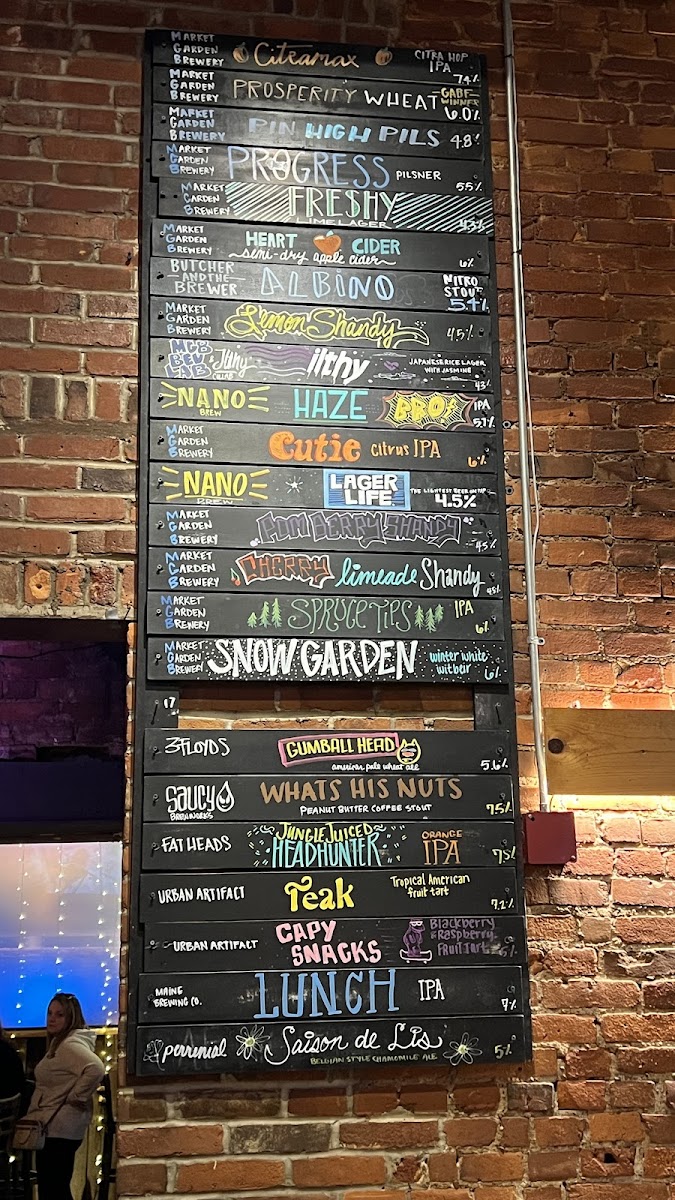 MARKET GARDEN BREWERY Citramax CITRA HOP IPA 7.4%
MARKET GARDEN BREWERY PROSPERITY WHEAT GABF WINNER 6.0%
MARKET GARDEN BREWERY PIN HIGH PILS 4.8%
MARKET GARDEN BREWERY PROGRESS PILSNER 5.5%
MARKET GARDEN BREWERY FRE$HY LIME LAGER 4.3%
MARKET GARDEN BREWERY HEART CIDER semi-dry apple cider 6%
BUTCHER AND THE BREWER ALBINO NITRO STOUT 5.4%
MARKET GARDEN BREWERY Lemon Shandy 4.5%
MGB BEV LAB & ilthy COLLAB ilthy JAPANESE RICE LAGER WITH JASMINE 4.3%
NANO BREW HAZE BRO! IPA 5.7%
MARKET GARDEN BREWERY Cutie citrus IPA 6%
NANO BREW LAGER LIFE THE LIGHTEST BEER ON TAP 4.5%
MARKET GARDEN BREWERY POM BERRY SHANDY 4.5%
MARKET GARDEN BREWERY CHERRY limeade Shandy 4.5%
MARKET GARDEN BREWERY SPRUCE TIPS IPA 6%
MARKET GARDEN BREWERY SNOW GARDEN winter white witbeir 6%
17
3 FLOYDS GUMBALL HEAD american pale wheat ale 5.6%
SAUCY BREWWORKS WHATS HIS NUTS PEANUT BUTTER COFFEE STOUT 7.5%
FAT HEADS JUNGLE JUICED HEADHUNTER ORANGE IPA 7.5%
URBAN ARTIFACT Teak Tropical American fruit tart 7.2%
URBAN ARTIFACT CAPY SNACKS Blackberry & Raspberry Fruit Tart
MAINE BREWING CO. LUNCH IPA 7%
perennial Saison de Lis BELGIAN STYLE CHAMOMILE ALE 5%